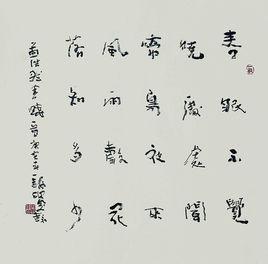 春眠不覺
曉處處聞
啼鳥夜來
風雨聲花
落知多少
孟浩然春曉一首